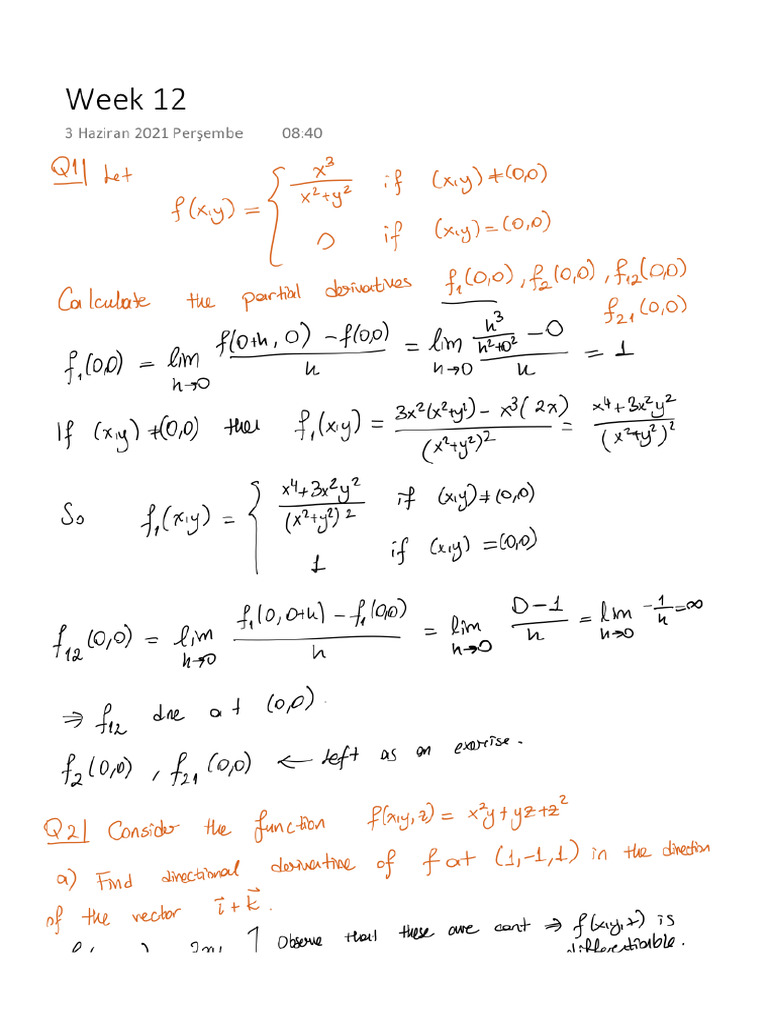 Week 12
3 Haziran 2021 Perşembe 08:40
Q1| Let f(x,y) = { x³/(x²+y²) if (x,y) ≠ (0,0)
0 if (x,y) = (0,0)
Calculate the partial derivatives f₁(0,0), f₂(0,0), f₁₂(0,0)
f₂₁(0,0)
f₁(0,0) = lim h→0 (f(0+h, 0) - f(0,0))/h = lim h→0 (h³/(h²+0²) - 0)/h = 1
If (x,y) ≠ (0,0) then f₁(x,y) = (3x²(x²+y²) - x³(2x))/(x²+y²)² = (x⁴+3x²y²)/(x²+y²)²
So f₁(x,y) = { (x⁴+3x²y²)/(x²+y²)² if (x,y) ≠ (0,0)
1 if (x,y) = (0,0)
f₁₂(0,0) = lim h→0 (f₁(0,0+h) - f₁(0,0))/h = lim h→0 (0-1)/h = lim h→0 -1/h = ∞
⇒ f₁₂ dne at (0,0).
f₂(0,0), f₂₁(0,0) ← left as an exercise.
Q2| Consider the function f(x,y,z) = x²y+yz+z²
a) Find directional derivative of f at (1,-1,1) in the direction
of the vector i⃗ + k⃗.
Observe that these are cont ⇒ f(x,y,z) is
differentiable.